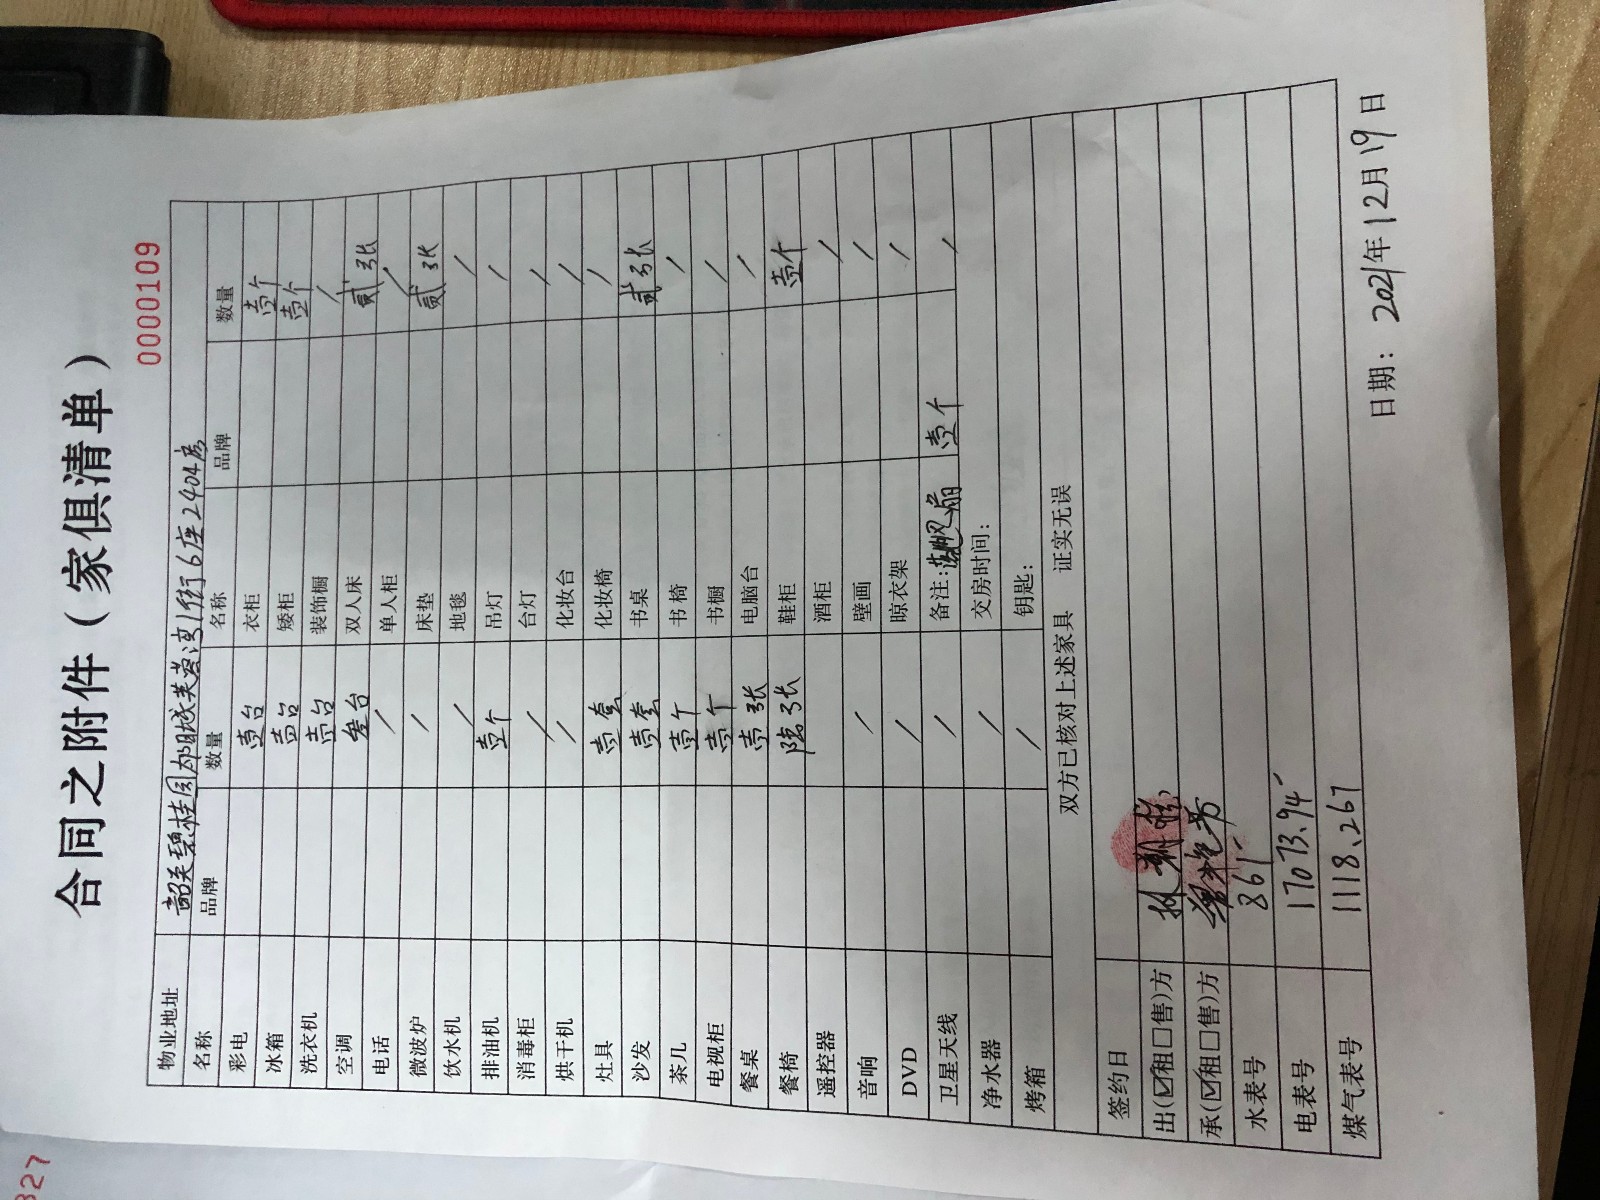 合同之附件（家俱清单）
0000109
物业地址 韶关碧桂园太阳城芙蓉湾1街6座2404房
名称 品牌 数量 名称 品牌 数量
彩电 壹台 衣柜 壹个
冰箱 壹台 矮柜 壹个
洗衣机 壹台 装饰橱 /
空调 叁台 双人床 贰张
电话 / 单人柜 /
微波炉 / 床垫 贰张
饮水机 / 地毯 /
排油机 壹个 吊灯 /
消毒柜 / 台灯 /
烘干机 / 化妆台 /
灶具 壹套 化妆椅 /
沙发 壹套 书桌 贰张
茶儿 壹个 书椅 /
电视柜 壹个 书橱 /
餐桌 壹张 电脑台 /
餐椅 陆张 鞋柜 壹个
遥控器 酒柜 /
音响 / 壁画 /
DVD / 晾衣架 /
卫星天线 / 备注: 风扇 壹个 /
净水器 / 交房时间:
烤箱 / 钥匙:
双方已核对上述家具 证实无误
签约日
出(☑租□售)方
承(☑租□售)方
水表号 861
电表号 17073.94
煤气表号 1118.267
日期: 2021年12月19日
327